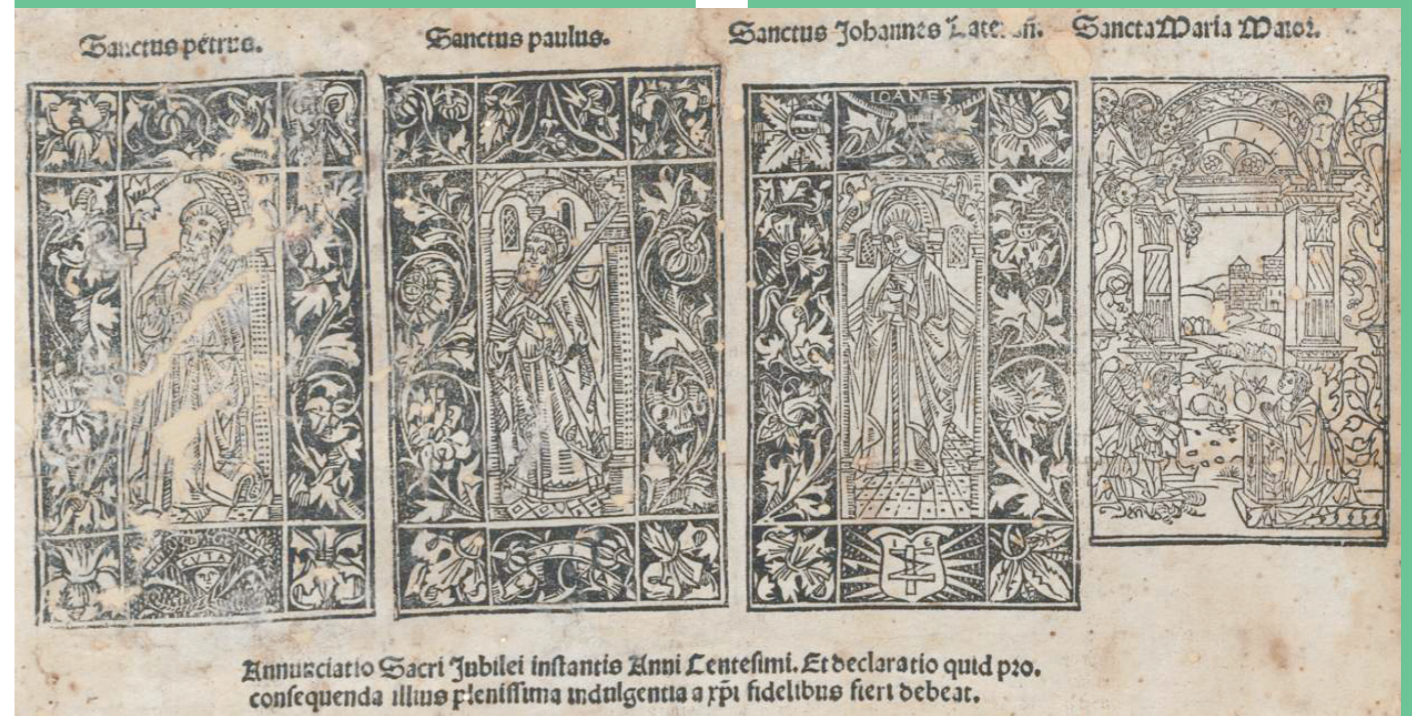 Sanctus petrus.
Sanctus paulus.
Sanctus Johannes
Sancta Maria Maior.
IOANES
Annunciatio Sacri Jubilei instantis Anni Centesimi. Et declaratio quid pro.
consequenda illius plenissima indulgentia a xp̄i fidelibus fieri debeat.